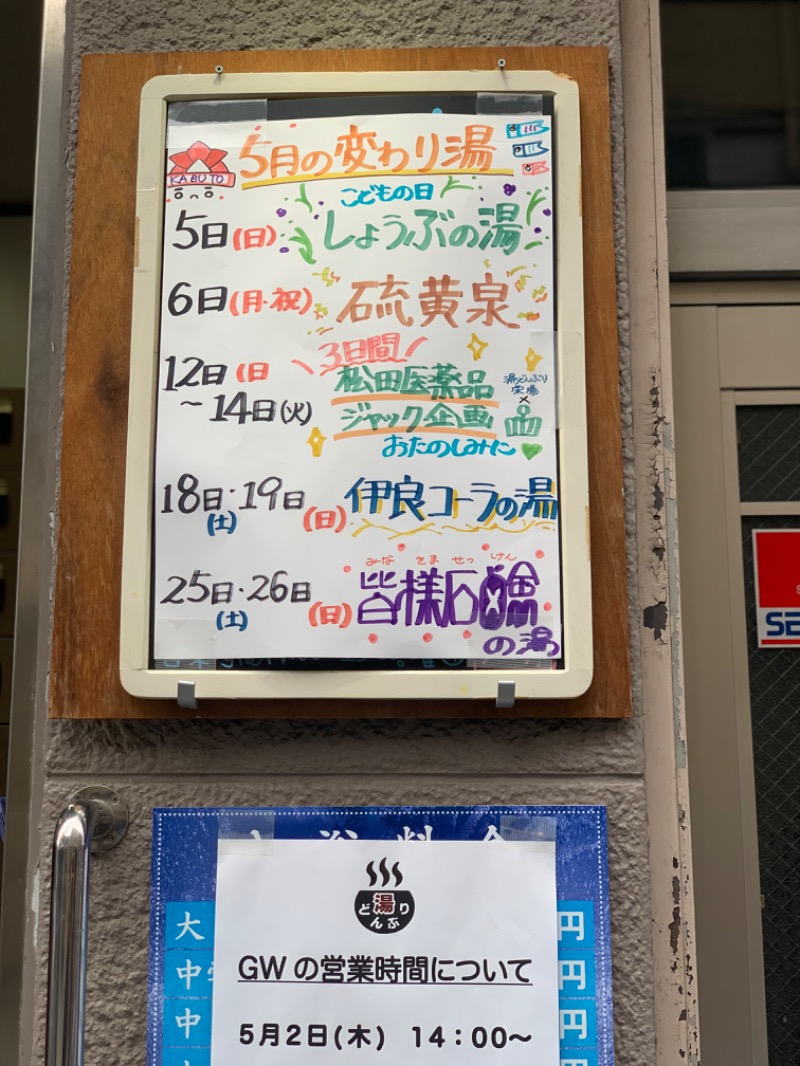 5月の変わり湯
KABUTO
こどもの日
5日(日) しょうぶの湯
6日(月・祝) 硫黄泉
3日間
12日(日
～14日(火)
松田医薬品
ジャック企画
湯どんぶり
栄湯
×
おたのしみに
18日・19日
(土) (日)
伊良コーラの湯
みな さま せっ けん
25日・26日
(土) (日)
皆様石鹼
の湯
湯
どんぶり
GWの営業時間について
5月2日(木) 14：00～
大
円
中学
円
中
円
SE